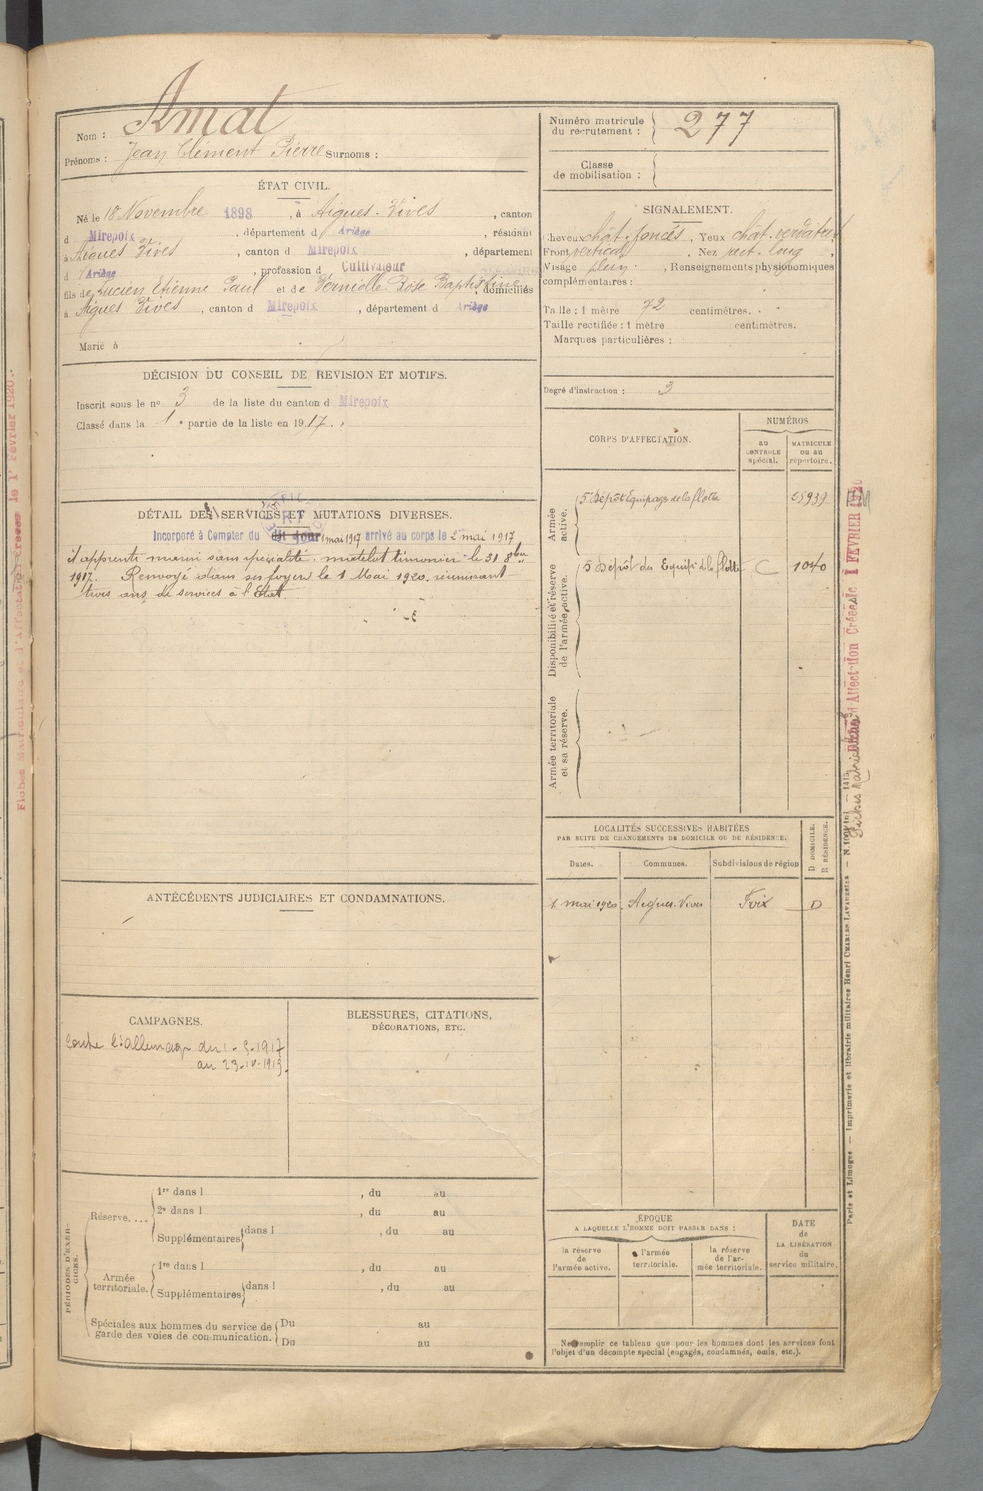 Nom : Amat
Prénoms : Jean Clément Pierre Surnoms :
Numéro matricule du recrutement : 277
Classe de mobilisation :
ÉTAT CIVIL.
Né le 18 Novembre 1898, à Aigues-Vives, canton
d Mirepoix, département d Ariège, résidant
à Aigues Vives, canton d Mirepoix, département
d Ariège, profession d Cultivateur
fils de Lucien Etienne Paul et de Verniolle Rose Baptistine, domiciliés
à Aigues Vives, canton d Mirepoix, département d Ariège
Marié à
SIGNALEMENT.
Cheveux chât. foncés, Yeux chat. verdatres
Front vertical, Nez rect. long,
Visage plein, Renseignements physionomiques
complémentaires :
Taille : 1 mètre 72 centimètres.
Taille rectifiée : 1 mètre centimètres.
Marques particulières :
Degré d'instruction : 3
DÉCISION DU CONSEIL DE REVISION ET MOTIFS.
Inscrit sous le no 3 de la liste du canton d Mirepoix
Classé dans la 1e partie de la liste en 1917.
DÉTAIL DES SERVICES ET MUTATIONS DIVERSES.
Incorporé à Compter du dit jour 1 mai 1917 arrivé au corps le 2 mai 1917
et apprenti marin sans spécialité. matelot timonier le 31 8bre
1917. Renvoyé dans ses foyers le 1 Mai 1920, réunissant
trois ans de services à l'Etat
CORPS D'AFFECTATION.
NUMÉROS
au CONTROLE spécial.
MATRICULE ou au répertoire.
Armée active.
5 Dépôt Equipages de la flotte
Disponibilité et réserve de l'armée active.
5 Depôt des Equip. de la flotte C 1040
Armée territoriale et sa réserve.
LOCALITÉS SUCCESSIVES HABITÉES
PAR SUITE DE CHANGEMENTS DE DOMICILE OU DE RÉSIDENCE.
Dates. Communes. Subdivisions de région
D DOMICILE. R RÉSIDENCE.
1 mai 1920. Aigues-Vives Foix D
ANTÉCÉDENTS JUDICIAIRES ET CONDAMNATIONS.
CAMPAGNES.
Contre l'allemagne du 1-5-1917
au 23-10-1919.
BLESSURES, CITATIONS,
DÉCORATIONS, ETC.
PÉRIODES D'EXERCICES.
Réserve....
1re dans l , du au
2e dans l , du au
Supplémentaires dans l , du au
Armée territoriale.
1re dans l , du au
Supplémentaires dans l , du au
Spéciales aux hommes du service de garde des voies de communication.
Du au
Du au
ÉPOQUE
A LAQUELLE L'HOMME DOIT PASSER DANS :
la réserve de l'armée active.
l'armée territoriale.
la réserve de l'armée territoriale.
DATE de LA LIBÉRATION du service militaire.
Ne remplir ce tableau que pour les hommes dont les services font
l'objet d'un décompte spécial (engagés, condamnés, omis, etc.).
Paris et Limoges — Imprimerie et librairie militaires Henri CHARLES-LAVAUZELLE
d'Affectation Créée le 1 FÉVRIER 1920
Fiches Matriculaire et d'Affectation Créées le 1er Février 1920.